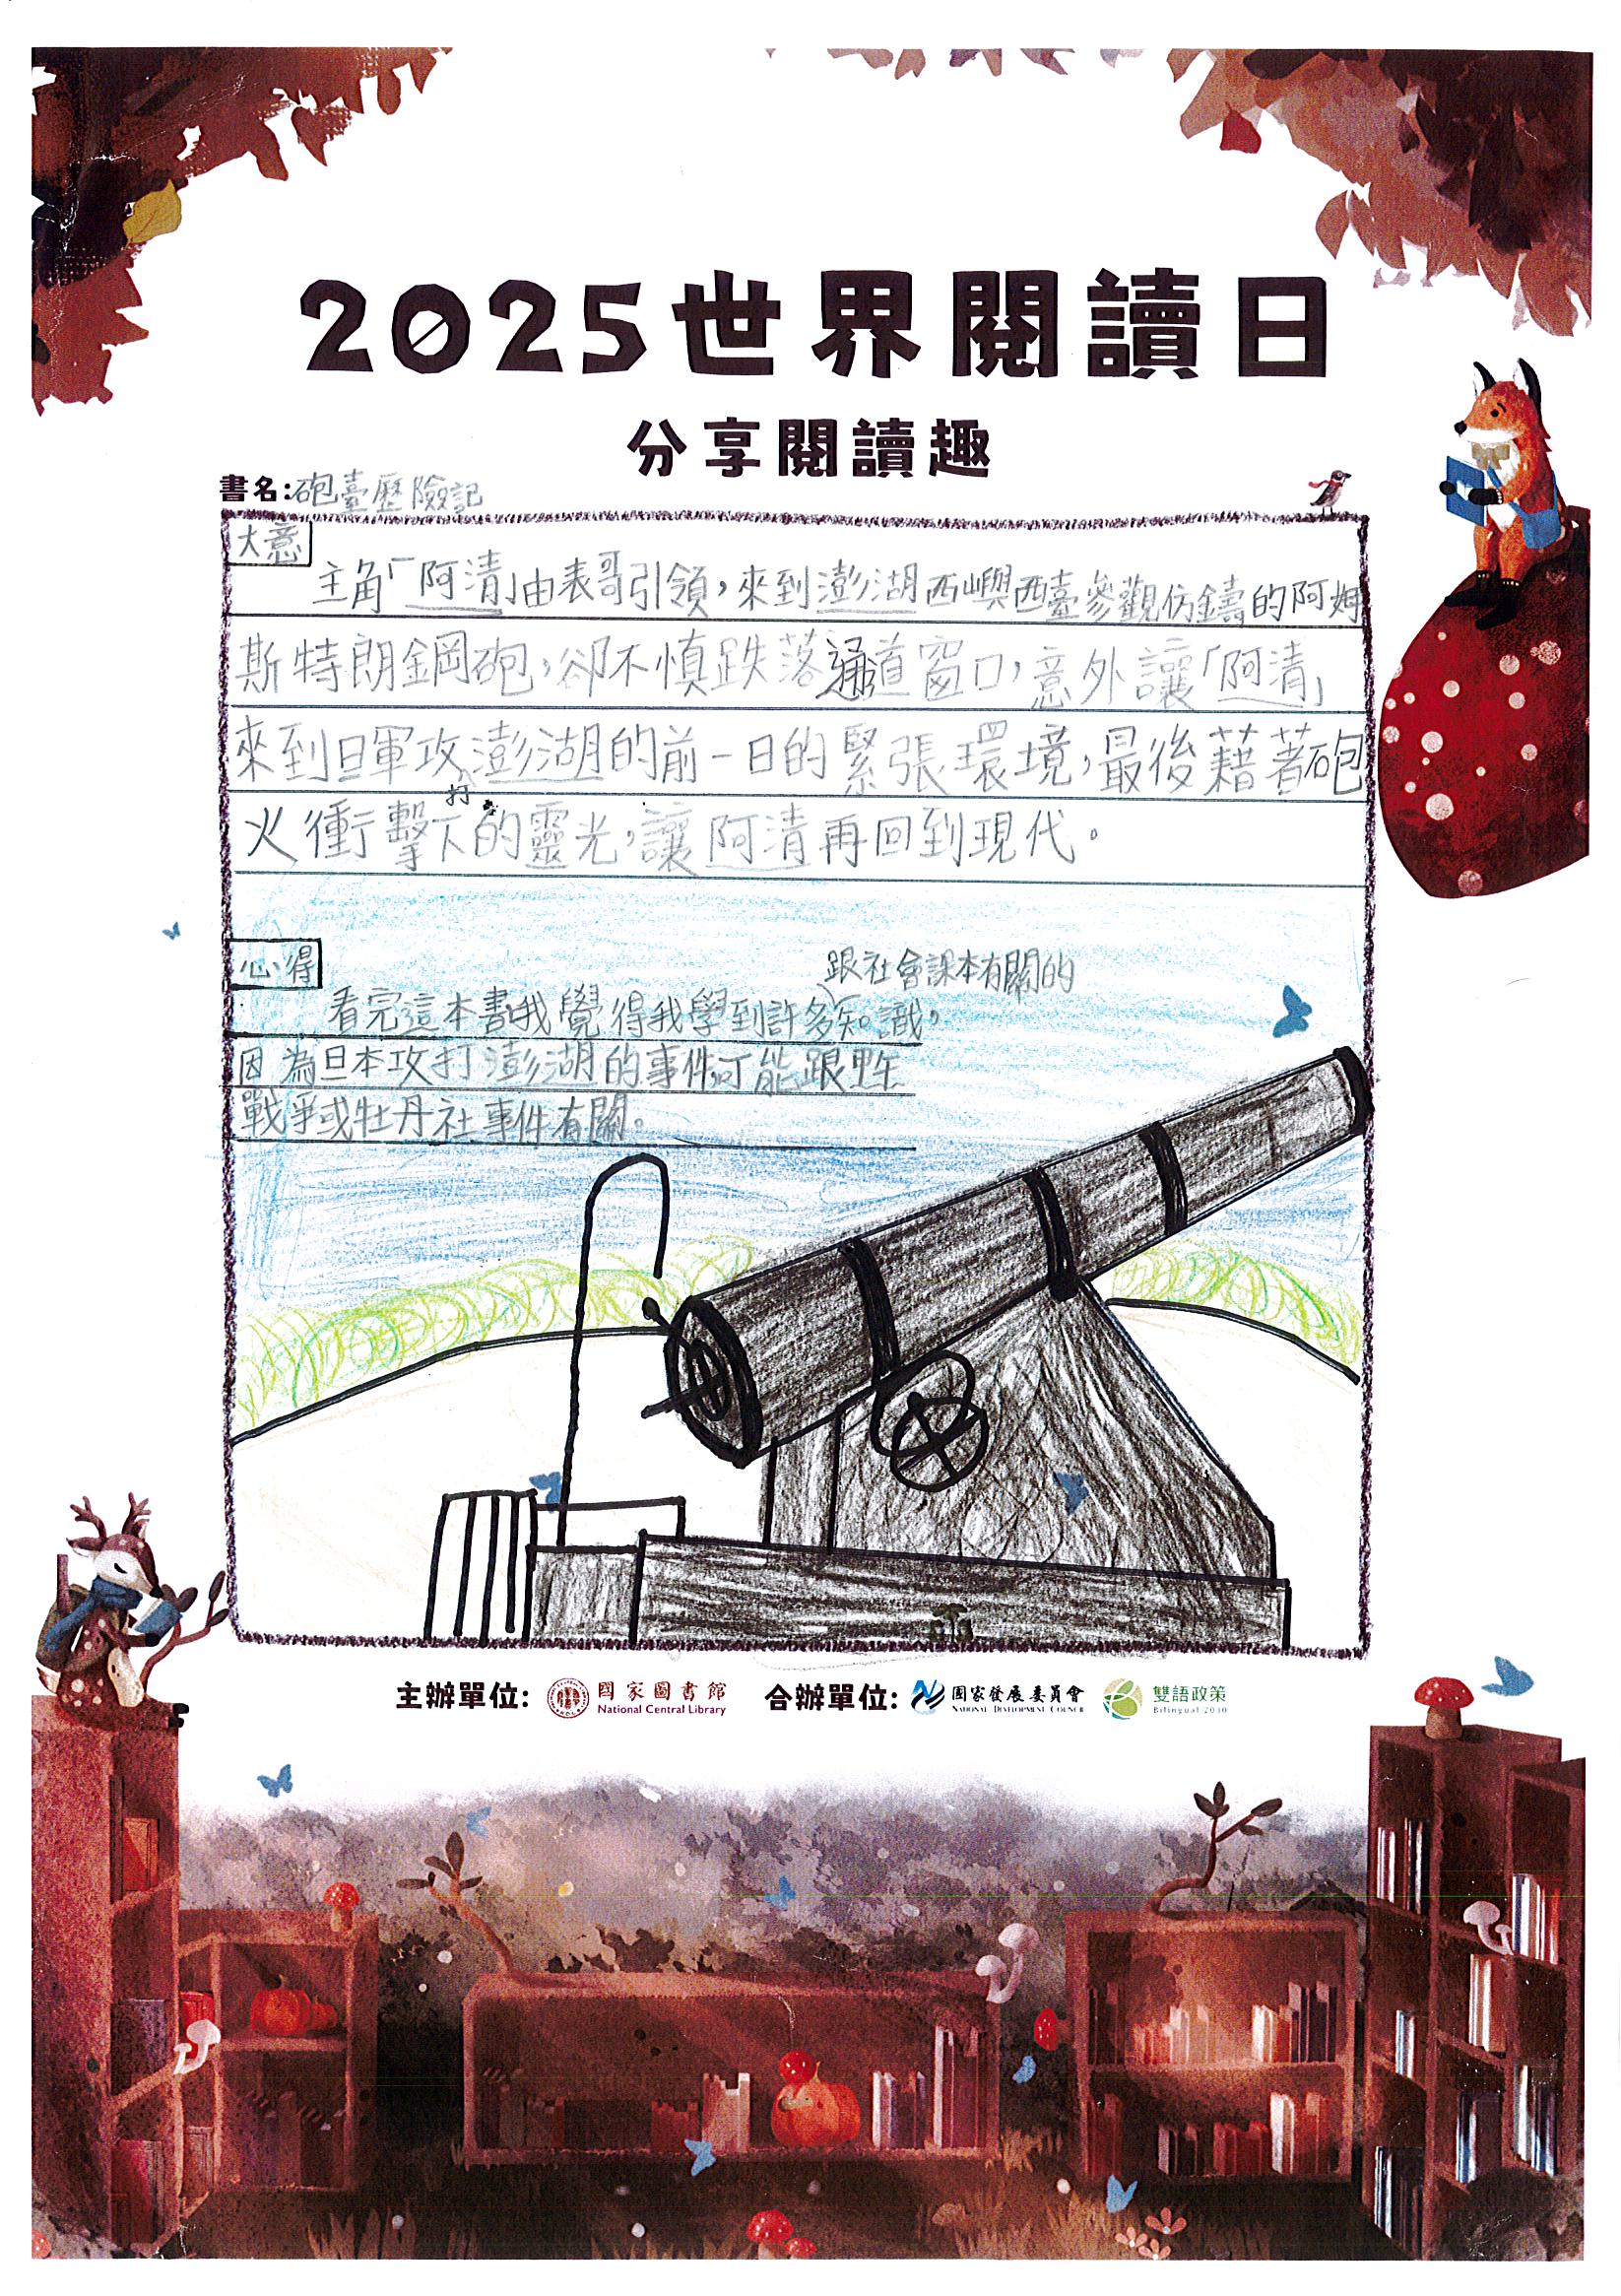 2025世界閱讀日
分享閱讀趣
書名:砲臺歷險記
大意
主角「阿清」由表哥引領,來到澎湖西嶼西臺參觀仿鑄的阿姆
斯特朗鋼砲,卻不慎跌落通道窗口,意外讓「阿清」
來到日軍攻打澎湖的前一日的緊張環境,最後藉著砲
火衝擊下的靈光,讓阿清再回到現代。
心得
跟社會課本有關的
看完這本書我覺得我學到許多知識,
因為日本攻打澎湖的事件可能跟甲午
戰爭或牡丹社事件有關。
主辦單位: 國家圖書館 合辦單位: 國家發展委員會 雙語政策
National Central Library NATIONAL DEVELOPMENT COUNCIL Bilingual 2030